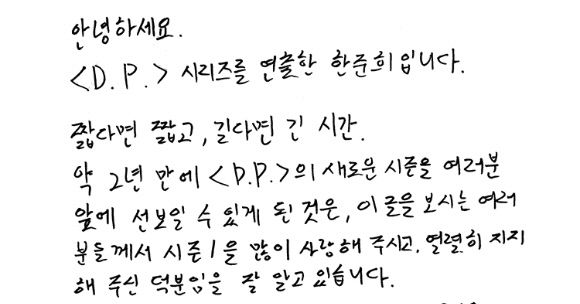 안녕하세요.
<D.P.> 시리즈를 연출한 한준희입니다.
짧다면 짧고, 길다면 긴 시간.
약 2년 만에 <D.P.>의 새로운 시즌을 여러분
앞에 선보일 수 있게 된 것은, 이 글을 보시는 여러
분들께서 시즌1을 많이 사랑해 주시고, 열렬히 지지
해 주신 덕분임을 잘 알고 있습니다.